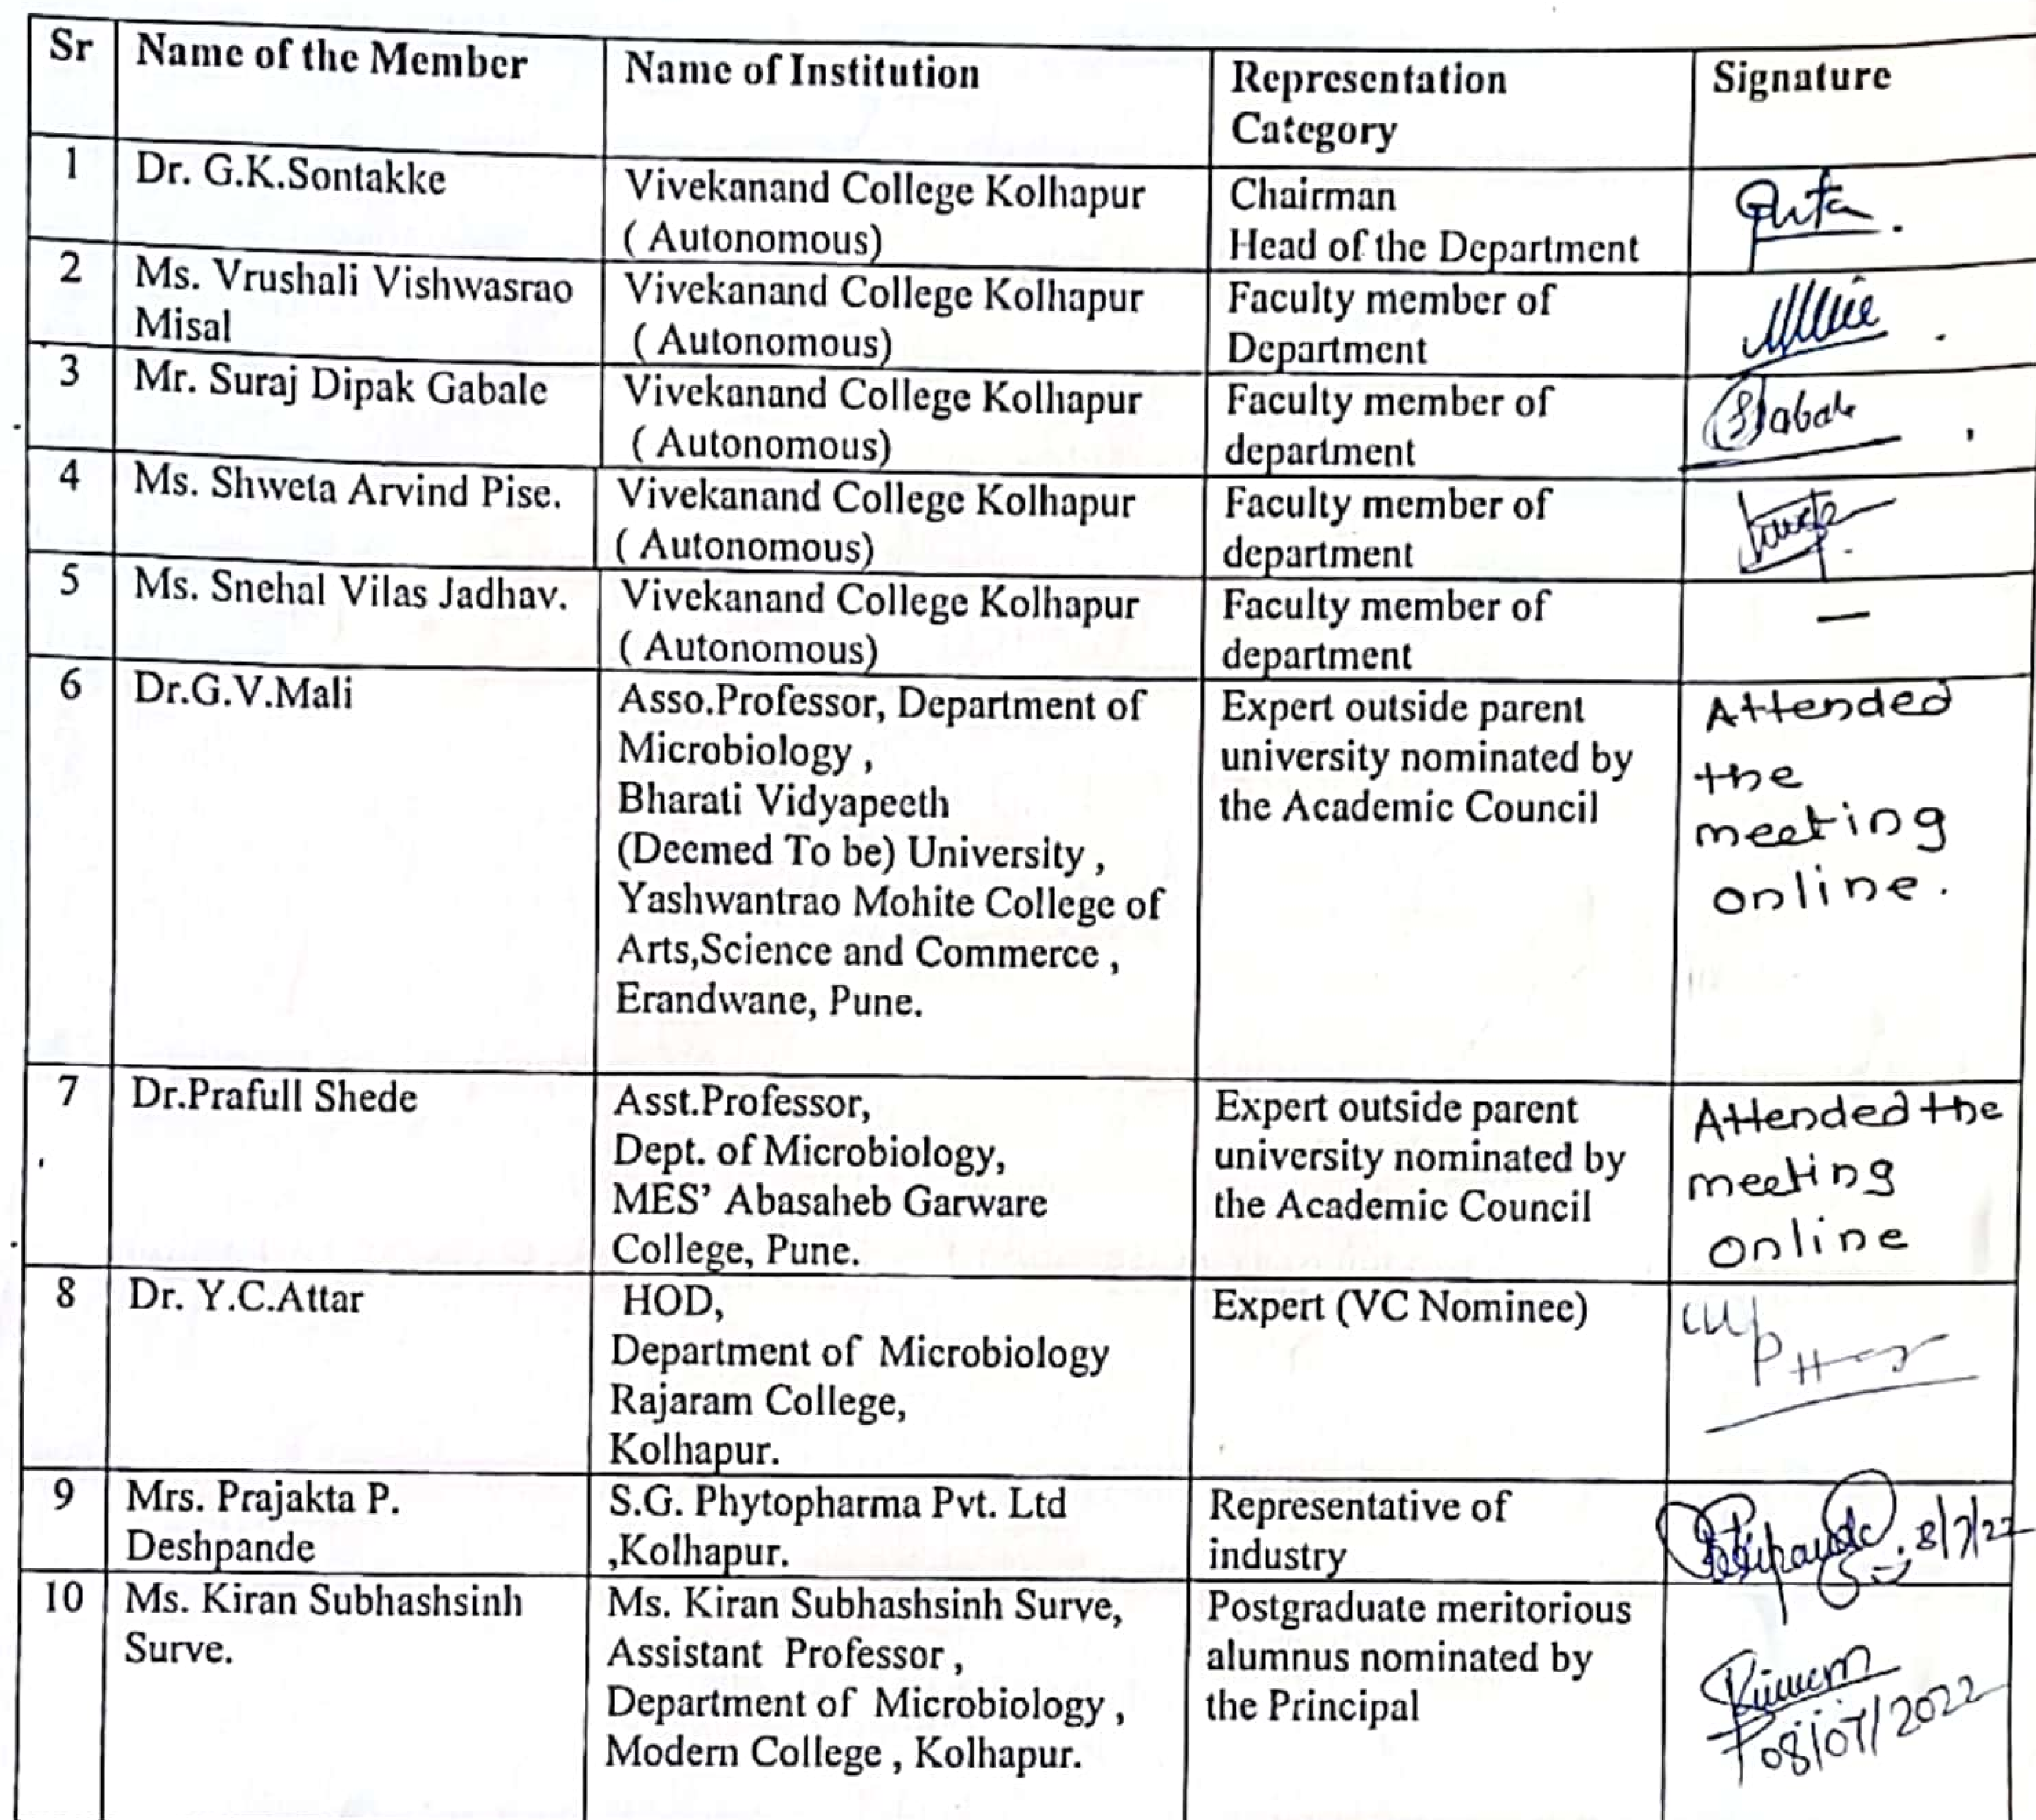 Sr
Name of the Member
Name of Institution
Representation
Category
Signature
1
Dr. G.K.Sontakke
Vivekanand College Kolhapur
( Autonomous)
Chairman
Head of the Department
2
Ms. Vrushali Vishwasrao
Misal
Vivekanand College Kolhapur
( Autonomous)
Faculty member of
Department
3
Mr. Suraj Dipak Gabale
Vivekanand College Kolhapur
( Autonomous)
Faculty member of
department
4
Ms. Shweta Arvind Pise.
Vivekanand College Kolhapur
( Autonomous)
Faculty member of
department
5
Ms. Snehal Vilas Jadhav.
Vivekanand College Kolhapur
( Autonomous)
Faculty member of
department
—
6
Dr.G.V.Mali
Asso.Professor, Department of
Microbiology ,
Bharati Vidyapeeth
(Deemed To be) University ,
Yashwantrao Mohite College of
Arts,Science and Commerce ,
Erandwane, Pune.
Expert outside parent
university nominated by
the Academic Council
Attended
the
meeting
online.
7
Dr.Prafull Shede
Asst.Professor,
Dept. of Microbiology,
MES’ Abasaheb Garware
College, Pune.
Expert outside parent
university nominated by
the Academic Council
Attended the
meeting
online
8
Dr. Y.C.Attar
HOD,
Department of Microbiology
Rajaram College,
Kolhapur.
Expert (VC Nominee)
9
Mrs. Prajakta P.
Deshpande
S.G. Phytopharma Pvt. Ltd
,Kolhapur.
Representative of
industry
8/7/22
10
Ms. Kiran Subhashsinh
Surve.
Ms. Kiran Subhashsinh Surve,
Assistant Professor ,
Department of Microbiology ,
Modern College , Kolhapur.
Postgraduate meritorious
alumnus nominated by
the Principal
08/07/2022